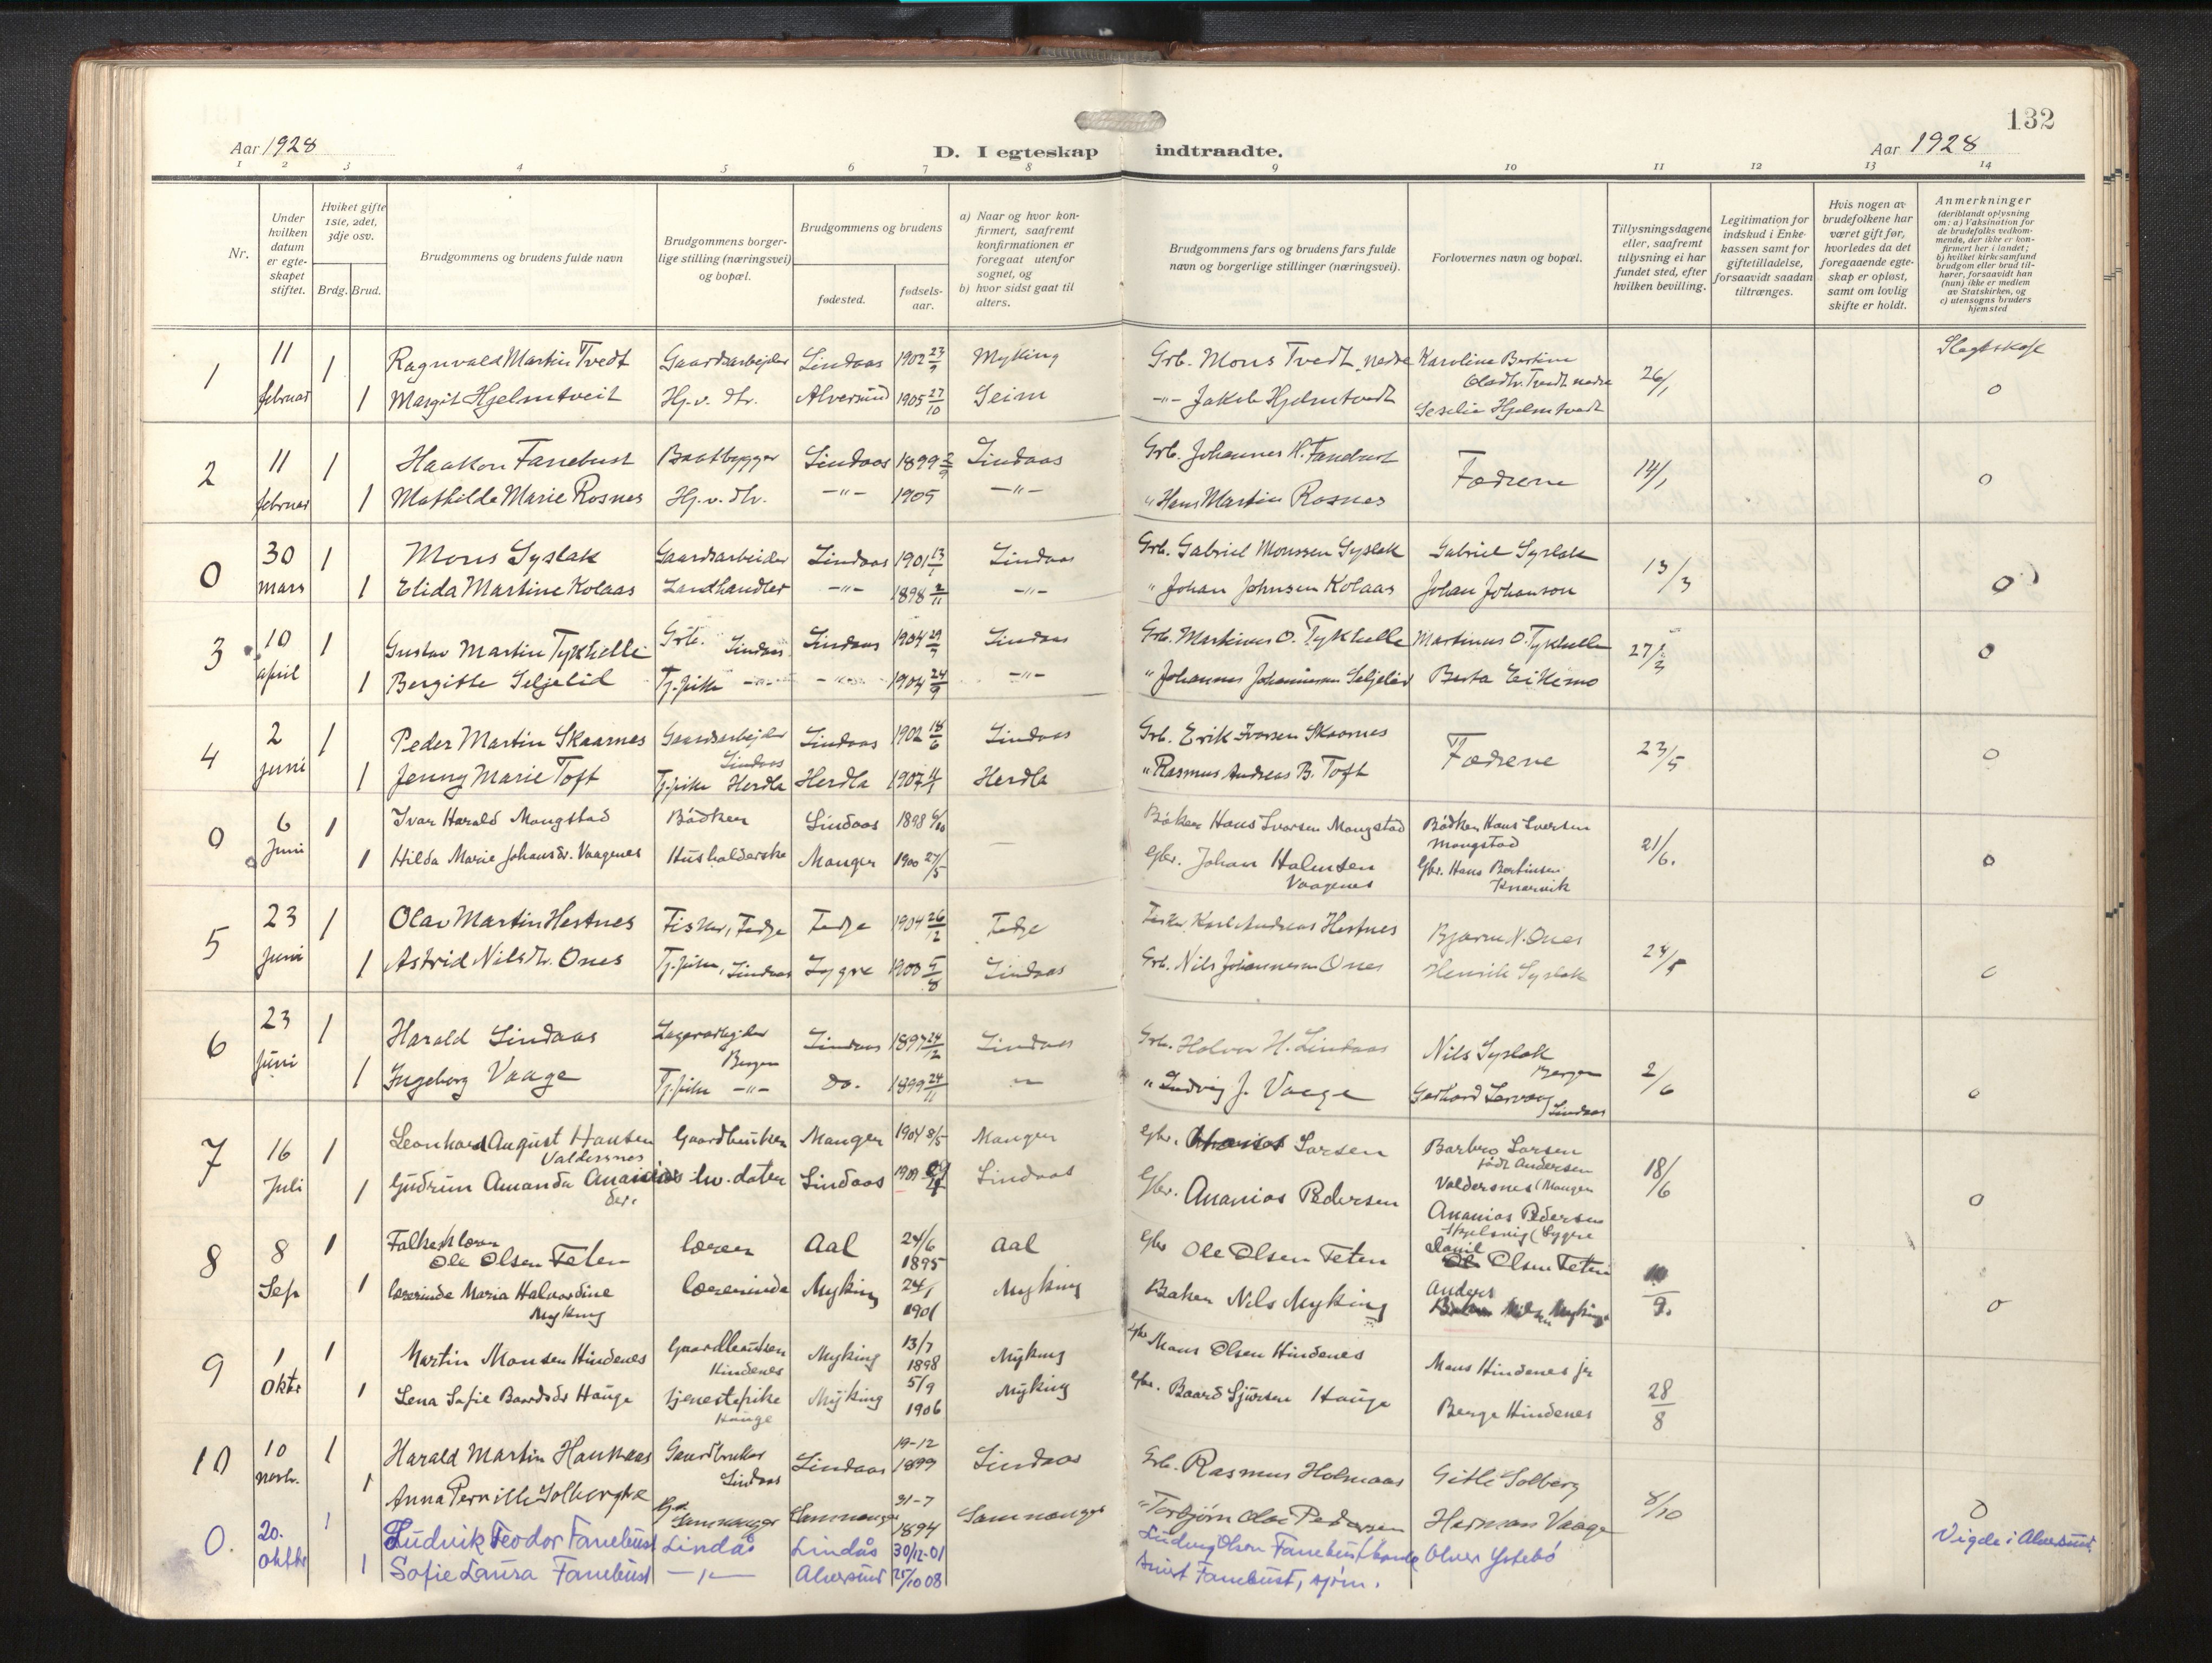 132
Aar 1928
D. I egteskap indtraadte.
Aar 1928
1 2 3 4 5 6 7 8 9 10 11 12 13 14
Nr.
Under hvilken datum er egteskapet stiftet.
Hviket gifte 1ste, 2det, 3dje osv.
Brdg. Brud.
Brudgommens og brudens fulde navn
Brudgommens borgerlige stilling (næringsvei) og bopæl.
Brudgommens og brudens
fødested.
fødselsaar.
a) Naar og hvor konfirmert, saafremt konfirmationen er foregaat utenfor sognet, og
b) hvor sidst gaat til alters.
Brudgommens fars og brudens fars fulde navn og borgerlige stillinger (næringsvei).
Forlovernes navn og bopæl.
Tillysningsdagene eller, saafremt tillysning ei har fundet sted, efter hvilken bevilling.
Legitimation for indskud i Enkekassen samt for giftetilladelse, forsaavidt saadan tiltrænges.
Hvis nogen av brudefolkene har været gift før, hvorledes da det foregaaende egteskap er opløst, samt om lovlig skifte er holdt.
Anmerkninger
(deriblandt oplysning om: a) Vaksination for de brudefolks vedkommende, der ikke er konfirmert her i landet; b) hvilket kirkesamfund brudgom eller brud tilhører, forsaavidt han (hun) ikke er medlem av Statskirken, og c) utensogns bruders hjemsted
1 11 februar 1 Ragnvald Martin Tvedt Gaardsarbeider Lindaas 1902 Myking Grb. Mons Tvedt nedre Karoline Bertine Olsdtr. Tvedt nedre 26/1 Slegtskap
1 Margit Hjelmtveit Hj.v. dtr. Alversund 1905 27/10 Seim -"- Jakob Hjelmtvedt Hjelmtvedt 0
2 11 februar 1 Haakon Fanebust Baatbygger Lindaas 1899 Lindaas Grb. Johannes H. Fanebust Fædrene 14/1 0
1 Mathilde Marie Rosnes Hj.v. dtr. -"- 1905 -"- " Hans Martin Rosnes
0 30 mars 1 Mons Syslak Gaardsarbeider Lindaas 1901 Lindaas Grb. Gabriel Monssen Syslak Gabriel Syslak 13/3
1 Elida Martine Kolaas Landhandler -"- 1898 2/11 -"- " Johan Johnsen Kolaas Johan Johanson 0
3 10 april 1 Gustav Martin Tykhelle Grb. Lindaas Lindaas 1904 Lindaas Grb. Martinus O. Tykhelle Martinus O. Tykhelle 0
1 Bergitte Seljelid Tj.pike -"- -"- 1904 24/9 -"- " Johannes Johannessen Seljelid Berta Eikemo
4 2 juni 1 Peder Martin Skaarnes Gaardsarbeider Lindaas Lindaas 1902 18/6 Lindaas Grb. Erik Ivarsen Skaarnes Fædrene 23/5 0
1 Jenny Marie Toft Tj.pike Herdla Herdla 1907 Herdla " Rasmus Andreas B. Toft
0 6 Juni 1 Ivar Harald Mongstad Bødker Lindaas 1898 Bøker Hans Ivarsen Mongstad Bødker Hans Iversen Mongstad 21/6.
1 Hilda Marie Johansdr. Vaagenes Husholderske Manger 1900 27/5 Gbr. Johan Halvnsen Vaagenes Gbr. Hans Bertinsen Knarvik 0
5 23 juni 1 Olav Martin Hestnes Fisker, Fedje Fedje 1904 26/12 Fedje Fisker Karl Andreas Hestnes Bjarne N. Ones 24/5
1 Astrid Nilsdtr. Ones Tj.pike, Lindaas Lygre 1900 5/8 Lindaas Grb. Nils Johannessen Ones Henrik Syslak 0
6 23 Juni 1 Harald Lindaas Lagerarbeider Bergen Lindaas 1897 24/12 Lindaas Grb. Halvor H. Lindaas Nils Syslak Bergen 2/6
1 Ingeborg Vaage Tj.pike -"- do. 1899 24/11 -"- " Ludvig J. Vaage Gerhard Lindaas 0
7 16 Juli 1 Leonhard August Hansen Valdersnes Gaardbruker Manger 1904 8/5 Manger Gbr. Larsen Barbro Larsen født Andersen Valdersnes (Manger 18/6
1 Gudrun Amanda Ananiasdr. hv. datter Lindaas 1909 Lindaas Gbr. Ananias Pedersen Ananias Pedersen (Lygre 0
8 8 Sep 1 Ole Olsen Feten lærer Aal 24/6 1895 Aal Gbr Ole Olsen Feten Olsen Feten
1 lærerinde Maria Halvardine Myking lærerinde Myking 1901 Myking Baker Nils Myking Anders Myking 9. 0
9 1 Oktr 1 Martin Monsen Hindenes Gaardbruker Hindenes Myking 13/7 1898 Myking Gbr Mons Olsen Hindenes Mons Hindenes jr 28/8
1 Lena Sofie Baardsdr Hauge tjenestepike Hauge Myking 5/9 1906 Myking Gbr. Baard Sjursen Hauge Berge Hindenes
10 10 novbr. 1 Harald Martin Gaardbruker Lindaas Lindaas 19-12 1899 Lindaas Grb. Rasmus Holmaas Gitle Solberg 8/10
1 Anna Pernille Solberg Samnanger Samnanger 31-7 1894 Samnanger " Torbjørn Olai Pedersen Herman Vaage 0
0. 20. oktbr 1 Ludvik Teodor Fanebust Lindås Lindås 30/12-01 Ludvig Olsen Fanebust, Olner Ystebø Vigde i Alversund
1 Sofie Laura Fanebust -"- Alversund 25/10 08 Fanebust,